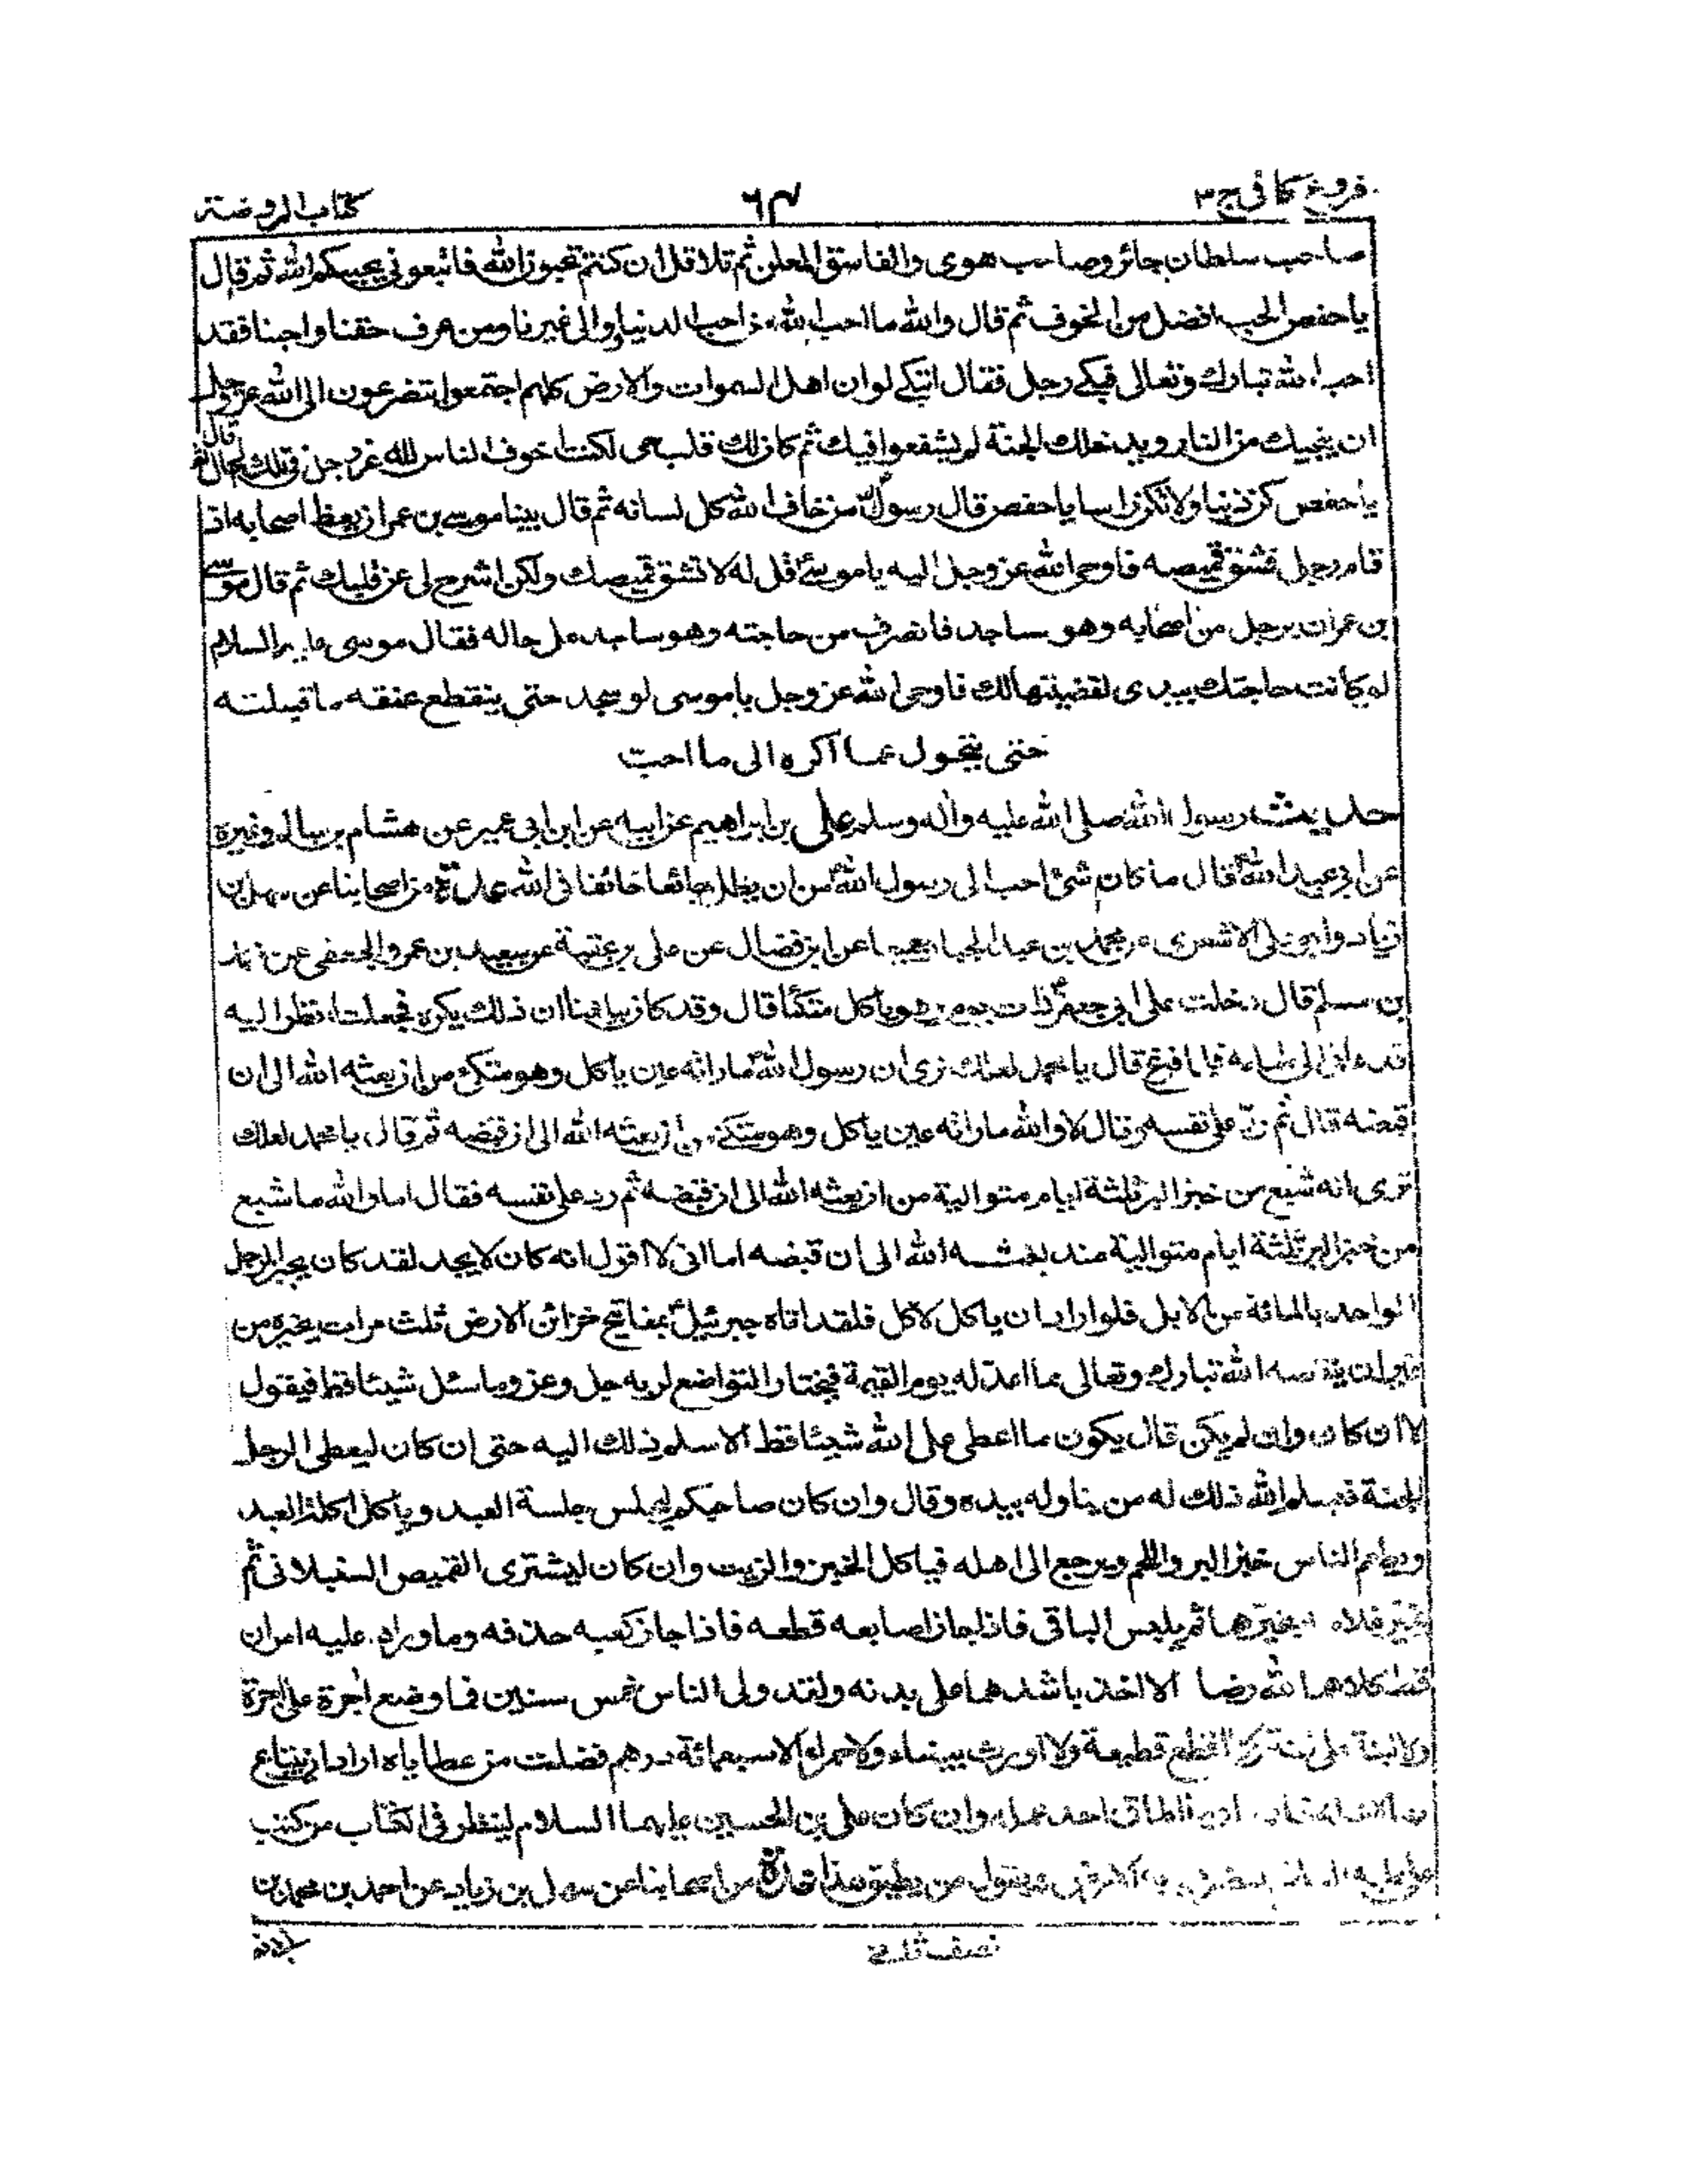 فروع کافی ج۳
٦٢
کتاب الروضة
صاحب سلطان جائر وصاحب هوی والفاسق المعلن ثم تلا قل ان کنتم تحبون الله فاتبعونی یحببکم الله ثم قال
یا حفص الحب افضل من الخوف ثم قال والله ما احب الله من احب الدنیا ووالی غیرنا ومن عرف حقنا واحبنا فقد
احب الله تبارک وتعالی فبکی رجل فقال اتبکی لو ان اهل السموات والارض کلهم اجتمعوا یتضرعون الی الله عز وجل
ان ینجیک من النار ویدخلک الجنة لم یشفعوا فیک ثم کان لک قلب حی لکنت اخوف الناس لله عز وجل فی تلک الحال ثم قال
یا حفص کن ذنبا ولا تکن راسا یا حفص قال رسول الله من خاف الله کل لسانه ثم قال بینا موسی بن عمران یعظ اصحابه اذ
قام رجل فشق قمیصه فاوحی الله عز وجل الیه یا موسی قل له لا تشق قمیصک ولکن اشرح لی عن قلبک ثم قال مر موسی
بن عمران برجل من اصحابه وهو ساجد فانصرف من حاجته وهو ساجد علی حاله فقال موسی علیه السلام
لو کانت حاجتک بیدی لقضیتها لک فاوحی الله عز وجل یا موسی لو سجد حتی ینقطع عنقه ما قبلته
حتی یتحول عما اکره الی ما احب
حدیث رسول الله صلی الله علیه وآله وسلم علی بن ابراهیم عن ابیه عن ابن ابی عمیر عن هشام بن سالم وغیره
عن ابی عبد الله قال ما کان شئ احب الی رسول الله من ان یظل جائعا خائفا فی الله عدة من اصحابنا عن سهل بن
زیاد وابو علی الاشعری عن محمد بن عبد الجبار جمیعا عن ابن فضال عن علی بن عقبة عن سعید بن عمرو الجعفی عن محمد
بن مسلم قال دخلت علی ابی جعفر ذات یوم وهو یاکل متکئا قال وقد کان یبلغنا ان ذلک یکره فجعلت انظر الیه
فدعانی الی طعامه فلما فرغ قال یا محمد لعلک تری ان رسول الله ما رأته عین یاکل وهو متکئ من ان بعثه الله الی ان
قبضه قال ثم رد علی نفسه فقال لا والله ما رأته عین یاکل وهو متکئ من ان بعثه الله الی ان قبضه ثم قال یا محمد لعلک
تری انه شبع من خبز البر ثلثة ایام متوالیة من ان بعثه الله الی ان قبضه ثم رد علی نفسه فقال اما والله ما شبع
من خبز البر ثلثة ایام متوالیة منذ بعثه الله الی ان قبضه اما انی لا اقول انه کان لا یجد لقد کان یجیز الرجل
الواحد بالمائة من الابل فلو اراد ان یاکل لاکل فلقد اتاه جبرئیل بمفاتیح خزائن الارض ثلث مرات یخیره من
غیر ان ینقصه الله تبارک وتعالی مما اعد له یوم القیمة فیختار التواضع لربه جل وعز وما سئل شیئا قط فیقول
لا ان کان وان لم یکن قال یکون ما اعطی علی الله شیئا قط الا سلم ذلک الیه حتی ان کان لیعطی الرجل
الجنة فیسلم الله ذلک له من یناوله بیده وقال وان کان صاحبکم لیجلس جلسة العبد ویاکل اکلة العبد
ویطعم الناس خبز البر واللحم ویرجع الی اهله فیاکل الخبز والزیت وان کان لیشتری القمیص السنبلانی ثم
یخیر غلامه خیرهما ثم یلبس الباقی فاذا جاز اصابعه قطعه فاذا جاز کعبه حذفه وما ورد علیه امران
قط کلاهما لله رضا الا اخذ باشدهما علی بدنه ولقد ولی الناس خمس سنین فما وضع اجرة علی اجرة
ولا لبنة علی لبنة ولا اقطع قطیعة ولا اورث بیضاء ولا حمراء الا سبعمائة درهم فضلت من عطایاه اراد ان یبتاع
اطاق احد عمله وان کان علی بن الحسین علیهما السلام لینظر فی الکتاب من کتب
علی علیه السلام فیضرب به الارض ویقول من یطیق هذا عدة من اصحابنا عن سهل بن زیاد عن احمد بن محمد بن
نصف ثلث